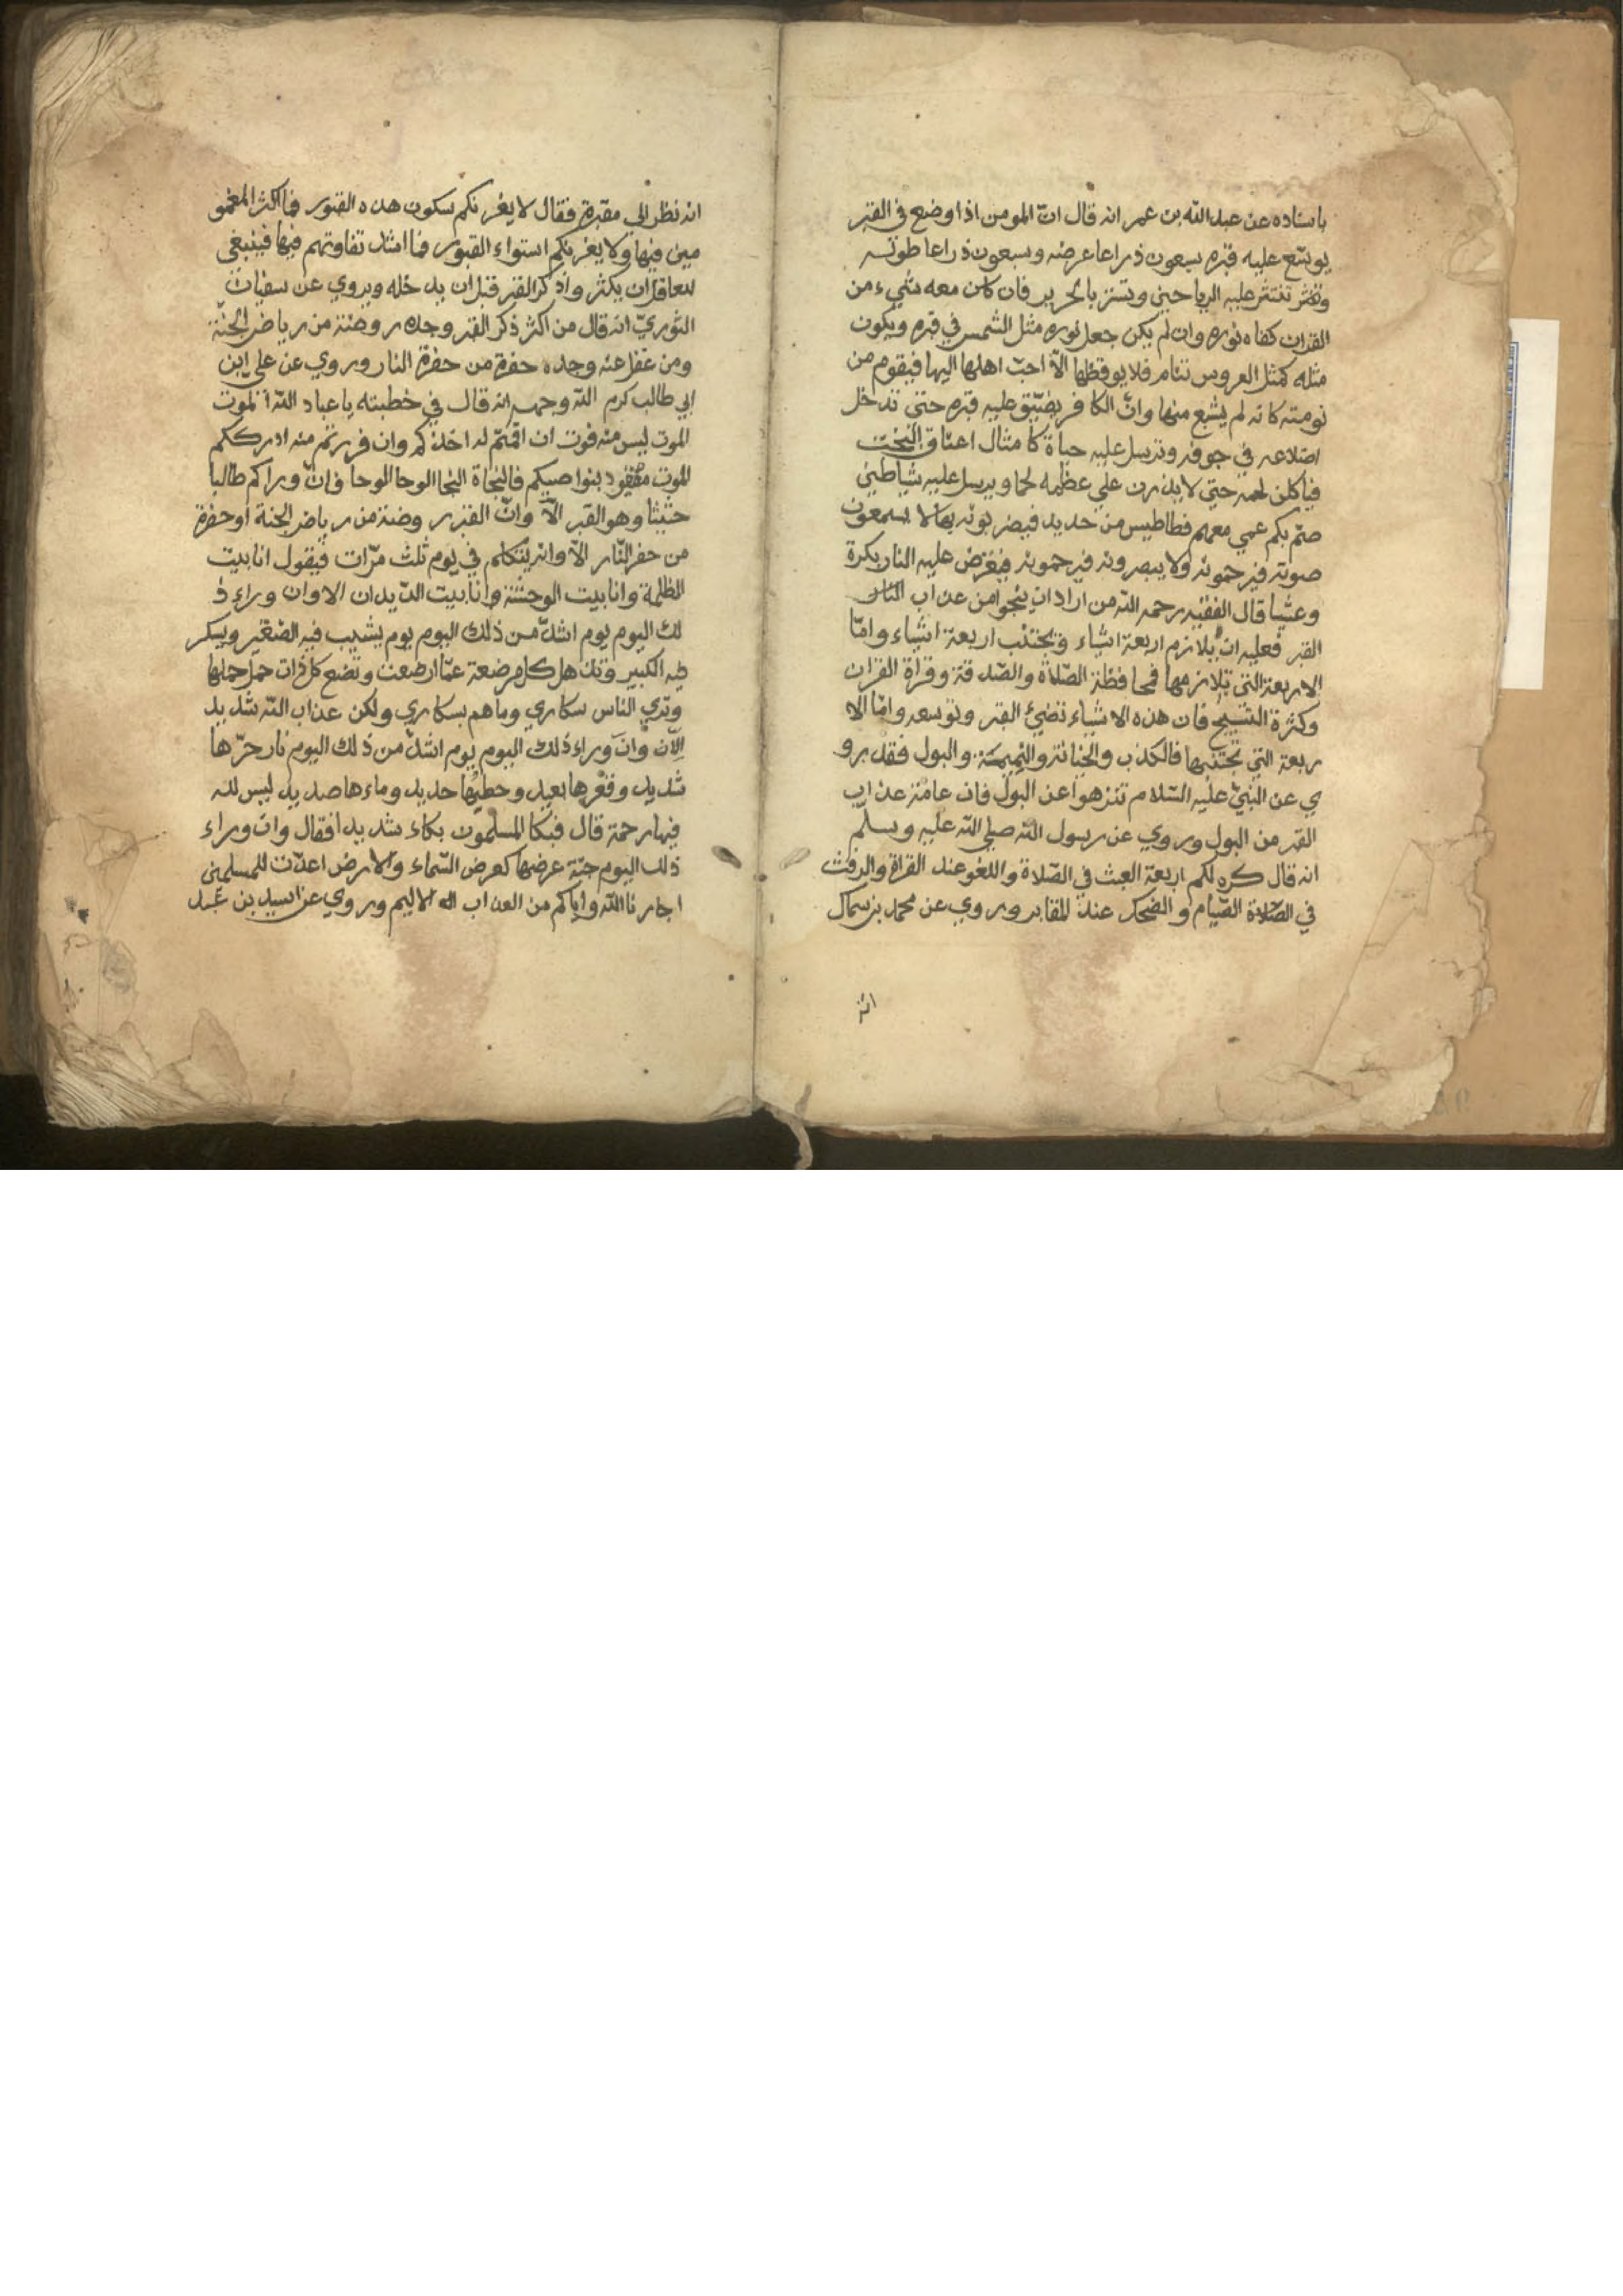 باسناده عن عبد الله بن عمر انه قال انّ المومن اذا وضع في القبر
يوسّع عليه قبره سبعون ذراعا عرضه وسبعون ذراعا طوله
وتنثر عليه الرياحين وتستر بالحرير فان كان معه شيء من
القران كفاه نوره وان لم يكن جعل نوره مثل الشمس في قبره ويكون
مثله كمثل العروس تنام فلا يوقظها الاّ احبّ اهلها اليها فيقوم من
نومته كانه لم يشبع منها وانّ الكافر يضيّق عليه قبره حتي تدخل
اضلاعه في جوفه وترسل عليه حياة كامثال اعناق البخت
فياكلن لحمه حتي لا يذرن علي عظمه لحما ويرسل عليه شياطين
صمّ بكم عمي معهم فطاطيس من حديد فيضربونه بها لا يسمعون
صوته فيرحمونه ولا يبصرونه فيرحمونه فيعرض عليه النار بكرة
وعشيا قال الفقيه رحمه الله من اراد ان ينجوا من عذاب
القبر فعليه ان يلازم اربعة اشياء ويجتنب اربعة اشياء وامّا
الاربعة التي يلازمها فمحافظة الصّلاة والصّدقة وقراة القران
وكثرة التسبيح فان هذه الاشياء تضيئ القبر وتوسعه وامّا الا
ربعة التي تجتنبها فالكذب والخيانة والنميمة والبول فقد رو
ي عن النبيّ عليه السّلام تنزهوا عن البول فان عامّة عذاب
القبر من البول وروي عن رسول الله صلي الله عليه وسلّم
انه قال كره لكم اربعة العبث في الصّلاة واللغو عند القراة والرفث
في الصّلاة الصّيام والضحك عند المقابر وروي عن محمد بن سماك
انه
انه نظر الي مقبرة فقال لا يغرنكم سكون هذه القبور فما اكثر المغمو
مين فيها ولا يغرنكم استواء القبور فما اشد تفاوتهم فيها فينبغي
للعاقل ان يكثر واذكر القبر قبل ان يدخله ويروي عن سفيان
الثوريّ انه قال من اكثر ذكر القبر وجده روضة من رياض الجنّة
ومن غفل عنه وجده حفرة من حفرة النار وروي عن علي ابن
ابي طالب كرم الله وجهه انه قال في خطبته يا عباد الله الموت
الموت ليس منه فوت ان اقمتم له اخذكم وان فررتم منه ادرككم
الموت معقود بنواصيكم فالنجاة النجا الوحا الوحا فانّ وراكم طالبا
حثيثا وهو القبر الاّ وانّ القبر روضة من رياض الجنة او حفرة
من حفر النّار الاّ وانه يتكلم في يوم ثلث مرّات فيقول انا بيت
الظلمة وانا بيت الوحشة وانا بيت الدّيدان الا وان وراء ذ
لك اليوم يوم اشدّ من ذلك اليوم يوم يشيب فيه الصّغير ويسكر
فيه الكبير وتذهل كل مرضعة عمّا ارضعت وتضع كل ذات حمل حملها
وتري الناس سكاري وما هم بسكاري ولكن عذاب الله شديد
الاّن وانّ وراء ذلك اليوم يوم اشدّ من ذلك اليوم نار حرّها
شديد وقعرها بعيد وحطبها حديد وماءها صديد ليس لله
فيها رحمة قال فبكا المسلمون بكاء شديدا فقال وانّ وراء
ذلك اليوم جنّة عرضها كعرض السّماء والارض اعدّت للمسلمين
اجارنا الله واياكم من العذاب الاليم وروي عن اسيد بن عبد